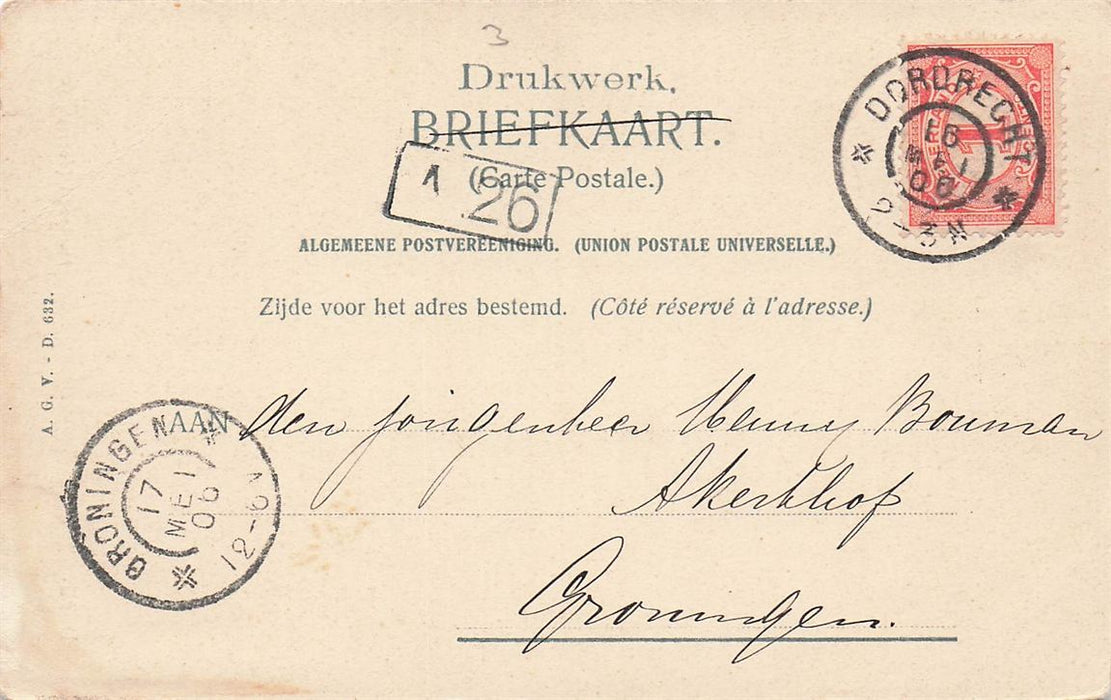 3
Drukwerk.
BRIEFKAART.
(Carte Postale.)
1 26
ALGEMEENE POSTVEREENIGING. (UNION POSTALE UNIVERSELLE.)
Zijde voor het adres bestemd. (Côté réservé à l'adresse.)
DORDRECHT
16
MEI
06
2-3N
1
A. G. V. - D. 632.
AAN den jongenheer Henny Bouman
Akerkhof
Groningen.
GRONINGEN
17
MEI
06
12-6V